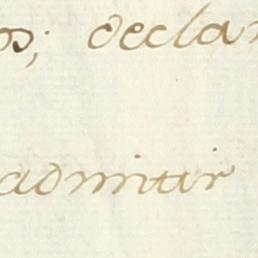 os; declar
admitir